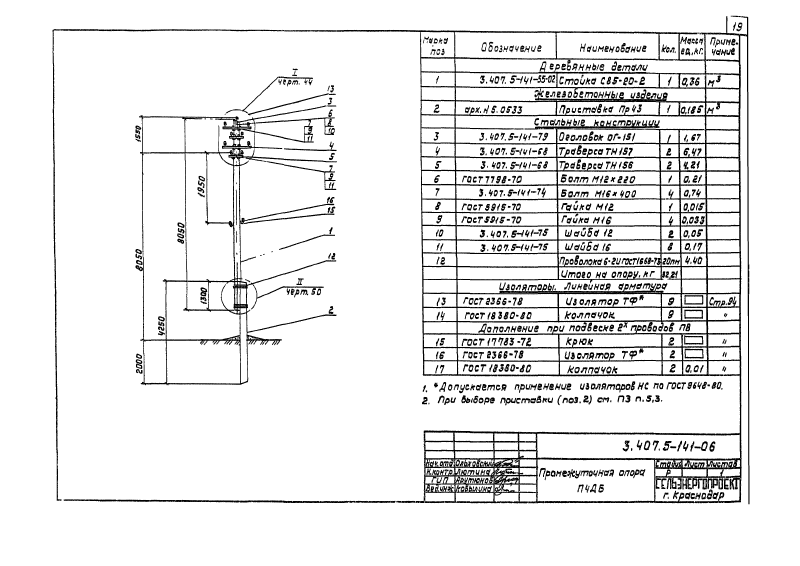 19
I
черт. 44
13
3
6
7
8
9
10
11
4
5
7
9
11
16
15
1
12
II
черт. 50
2
1550
8050
2000
1950
8050
1300
4250
Марка поз | Обозначение | Наименование | Кол. | Масса ед., кг. | Приме-чание
Деревянные детали
1 | 3.407.5-141-55-02 | Стойка С85-20-2 | 1 | 0,36 | м³
Железобетонные изделия
2 | арх. №5.0533 | Приставка Пр43 | 1 | 0,185 | м³
Стальные конструкции
3 | 3.407.5-141-79 | Оголовок ОГ-151 | 1 | 1,67
4 | 3.407.5-141-68 | Траверса ТН157 | 2 | 6,47
5 | 3.407.5-141-68 | Траверса ТН156 | 2 | 4,21
6 | ГОСТ 7798-70 | Болт М12×220 | 1 | 0,21
7 | 3.407.5-141-74 | Болт М16×400 | 4 | 0,74
8 | ГОСТ 5915-70 | Гайка М12 | 1 | 0,015
9 | ГОСТ 5915-70 | Гайка М16 | 4 | 0,033
10 | 3.407.5-141-75 | Шайба 12 | 2 | 0,05
11 | 3.407.5-141-75 | Шайба 16 | 8 | 0,17
12 | Проволока 6-2Ц ГОСТ 1668-73 | 20пм | 4.40
Итого на опору, кг | 32,21
Изоляторы. Линейная арматура
13 | ГОСТ 2366-78 | Изолятор ТФ* | 9 | Стр.94
14 | ГОСТ 18380-80 | Колпачок | 9 | "
Дополнение при подвеске 2х проводов ПВ
15 | ГОСТ 17783-72 | Крюк | 2 | "
16 | ГОСТ 2366-78 | Изолятор ТФ* | 2 | "
17 | ГОСТ 18380-80 | Колпачок | 2 | 0,01 | "
1. *Допускается применение изоляторов НС по ГОСТ 9648-80.
2. При выборе приставки (поз.2) см. ПЗ п.5,3.
3.407.5-141-06
Нач.отд. Ольховский
Н.контр. Лютина
ГИП Арутюнов
Вед.инж. Ковылина
Промежуточная опора
П4ДБ
Стадия Лист Листов
Р 1
СЕЛЬЭНЕРГОПРОЕКТ
г. Краснодар